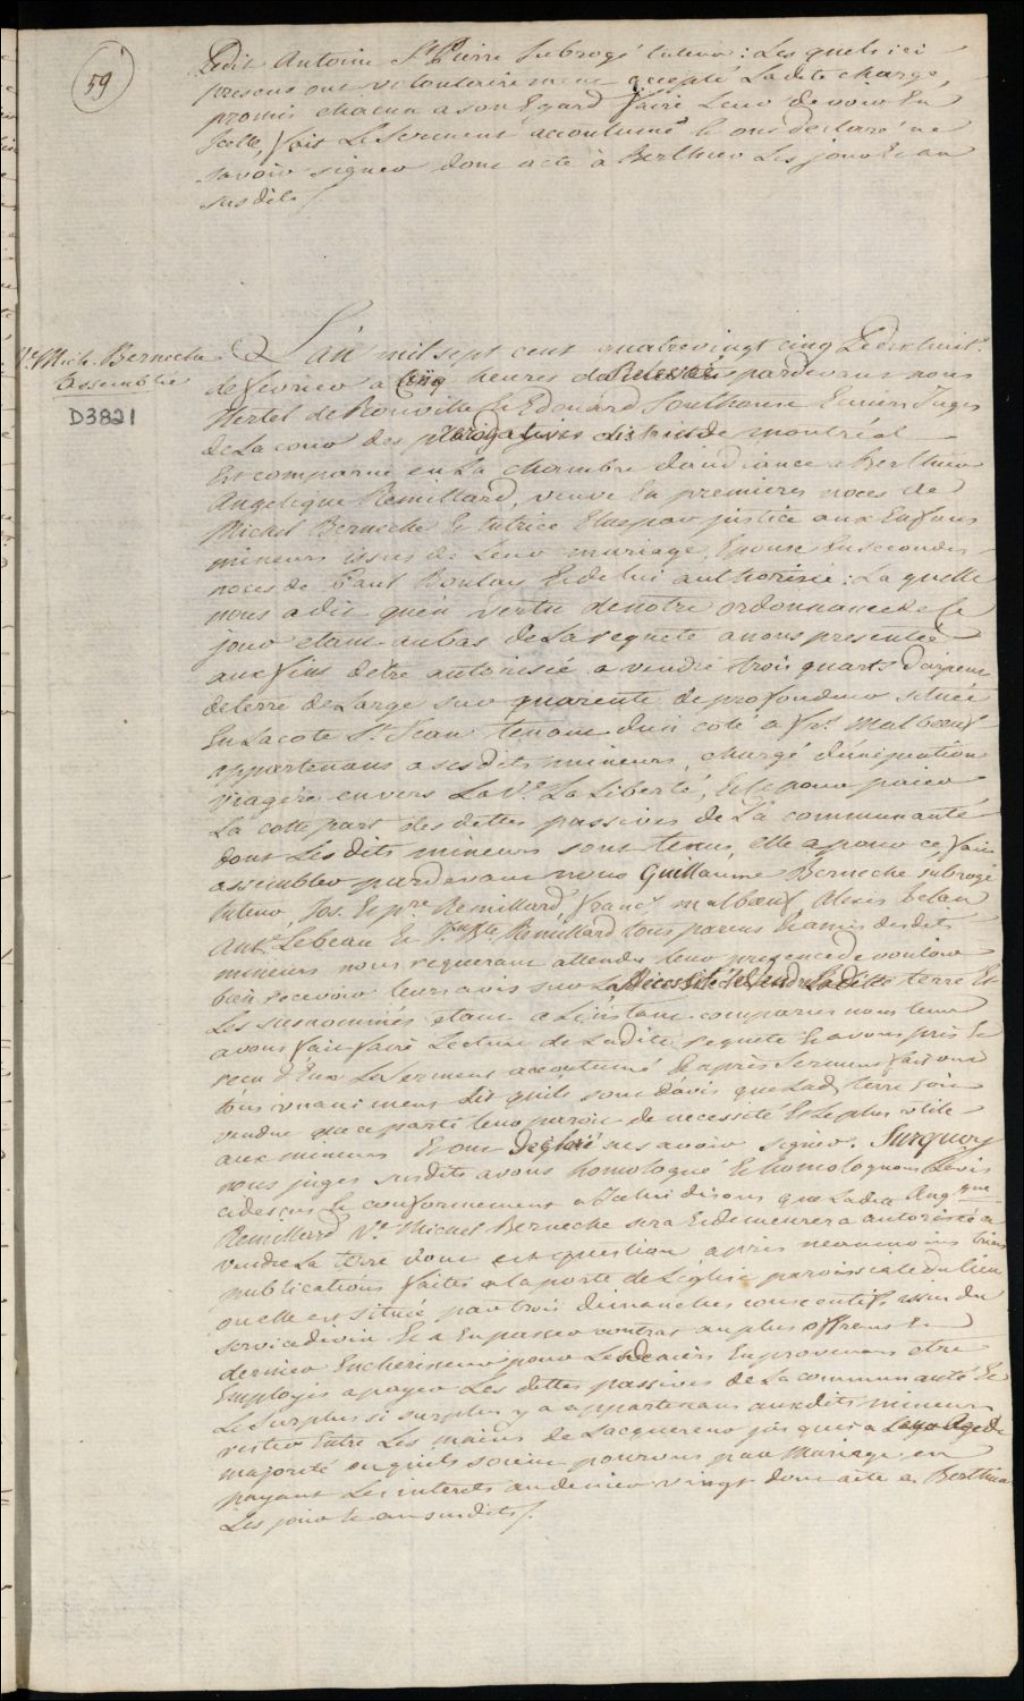 59
Ledit Antoine St Pierre Subrogé tuteur : Les quels ici
presens ont volontairement accepté Ladite charge,
promis chacun a son Egard faire Leur devoir En
Icelle, fait Le Serment accoutumé Et ont declaré ne
savoir signer dont acte à Berthier Les jour Et an
susdits /.
Ve Mich. Berneche
Assemblée
D3821
L'an mil sept cent quatrevingt cinq Le dix huit
de fevrier a Cinq heures de Relevée pardevant nous
Hertel de Rouville Et Edouard Southouse Ecuiers Juges
de La cour des plaidoyers communs district de montréal
Est comparue en La chambre d'audiance a Berthier
Angelique Remillard, veuve En premieres noces de
Michel Berneche Et tutrice Elue par justice aux Enfans
mineurs issus de Leur mariage, Epouse En secondes
noces de Paul Boulay Et de lui authorisée : La quelle
nous a dit qu'en vertu de notre ordonnance de Ce
jour etant au bas de La requete a nous presentée
aux fins detre autorisée a vendre trois quarts d'arpent
de terre de Large sur quarente de profondeur située
En La cote St Jean tenant d'un coté a frs Malboeuf
appartenans a ses dits mineurs, chargé d'une pention
viagère envers La Ve La Liberté, Et ce pour paier
La cotte part des dettes passives de La communauté
dont Les dits mineurs sont tenus, elle a pour ce, fait
assembler pardevant nous Guillaume Berneche subrogé
tuteur, Jos. Et pre Remillard, franc. malboeuf, Alexis Belair
Ant. Lebeau Et J. Bte Remillard tous parens Et amis des dits
mineurs nous requerant attendu leur presence de vouloir
bien recevoir leurs avis sur La Nécessité de Vendre La ditte terre Et
Les susnommés etant a L'instant comparus nous leur
avons fait faire Lecture de Ladite requete Et avons pris Et
recu d'Eux Le Serment accoutumé Et après Serment fait ont
tous unanimement dit quils sont d'avis que Lad. terre soit
vendue que ce parti leur paroit de necessité Et Le plus utile
aux mineurs Et ont Declaré ne savoir signer. Surquoy
nous juges susdits avons homologué Et homologuons L'avis
cidessus Et conformement a Icelui disons que Ladite Angque
Remillard Ve Michel Berneche sera Et demeurera autorisée a
vendre La terre dont est question après neanmoins trois
publications faites a la porte de L'église paroissiale du lieu
ou elle est située par trois dimanches consecutifs, issue du
service divin Et a En passer contrat au plus offrant Et
dernier Encherisseur pour Les deniers En provenans etre
Employés a payer Les dettes passives de La communauté Et
Le Surplus si surplus y a appartenans aux dits mineurs
rester Entre Les mains de Lacquereur jusques a Leur Age de
majorité ou quils soient pourvus par Mariage en
payant Les interets au denier vingt dont acte a Berthier
Les jour Et an susdits /.